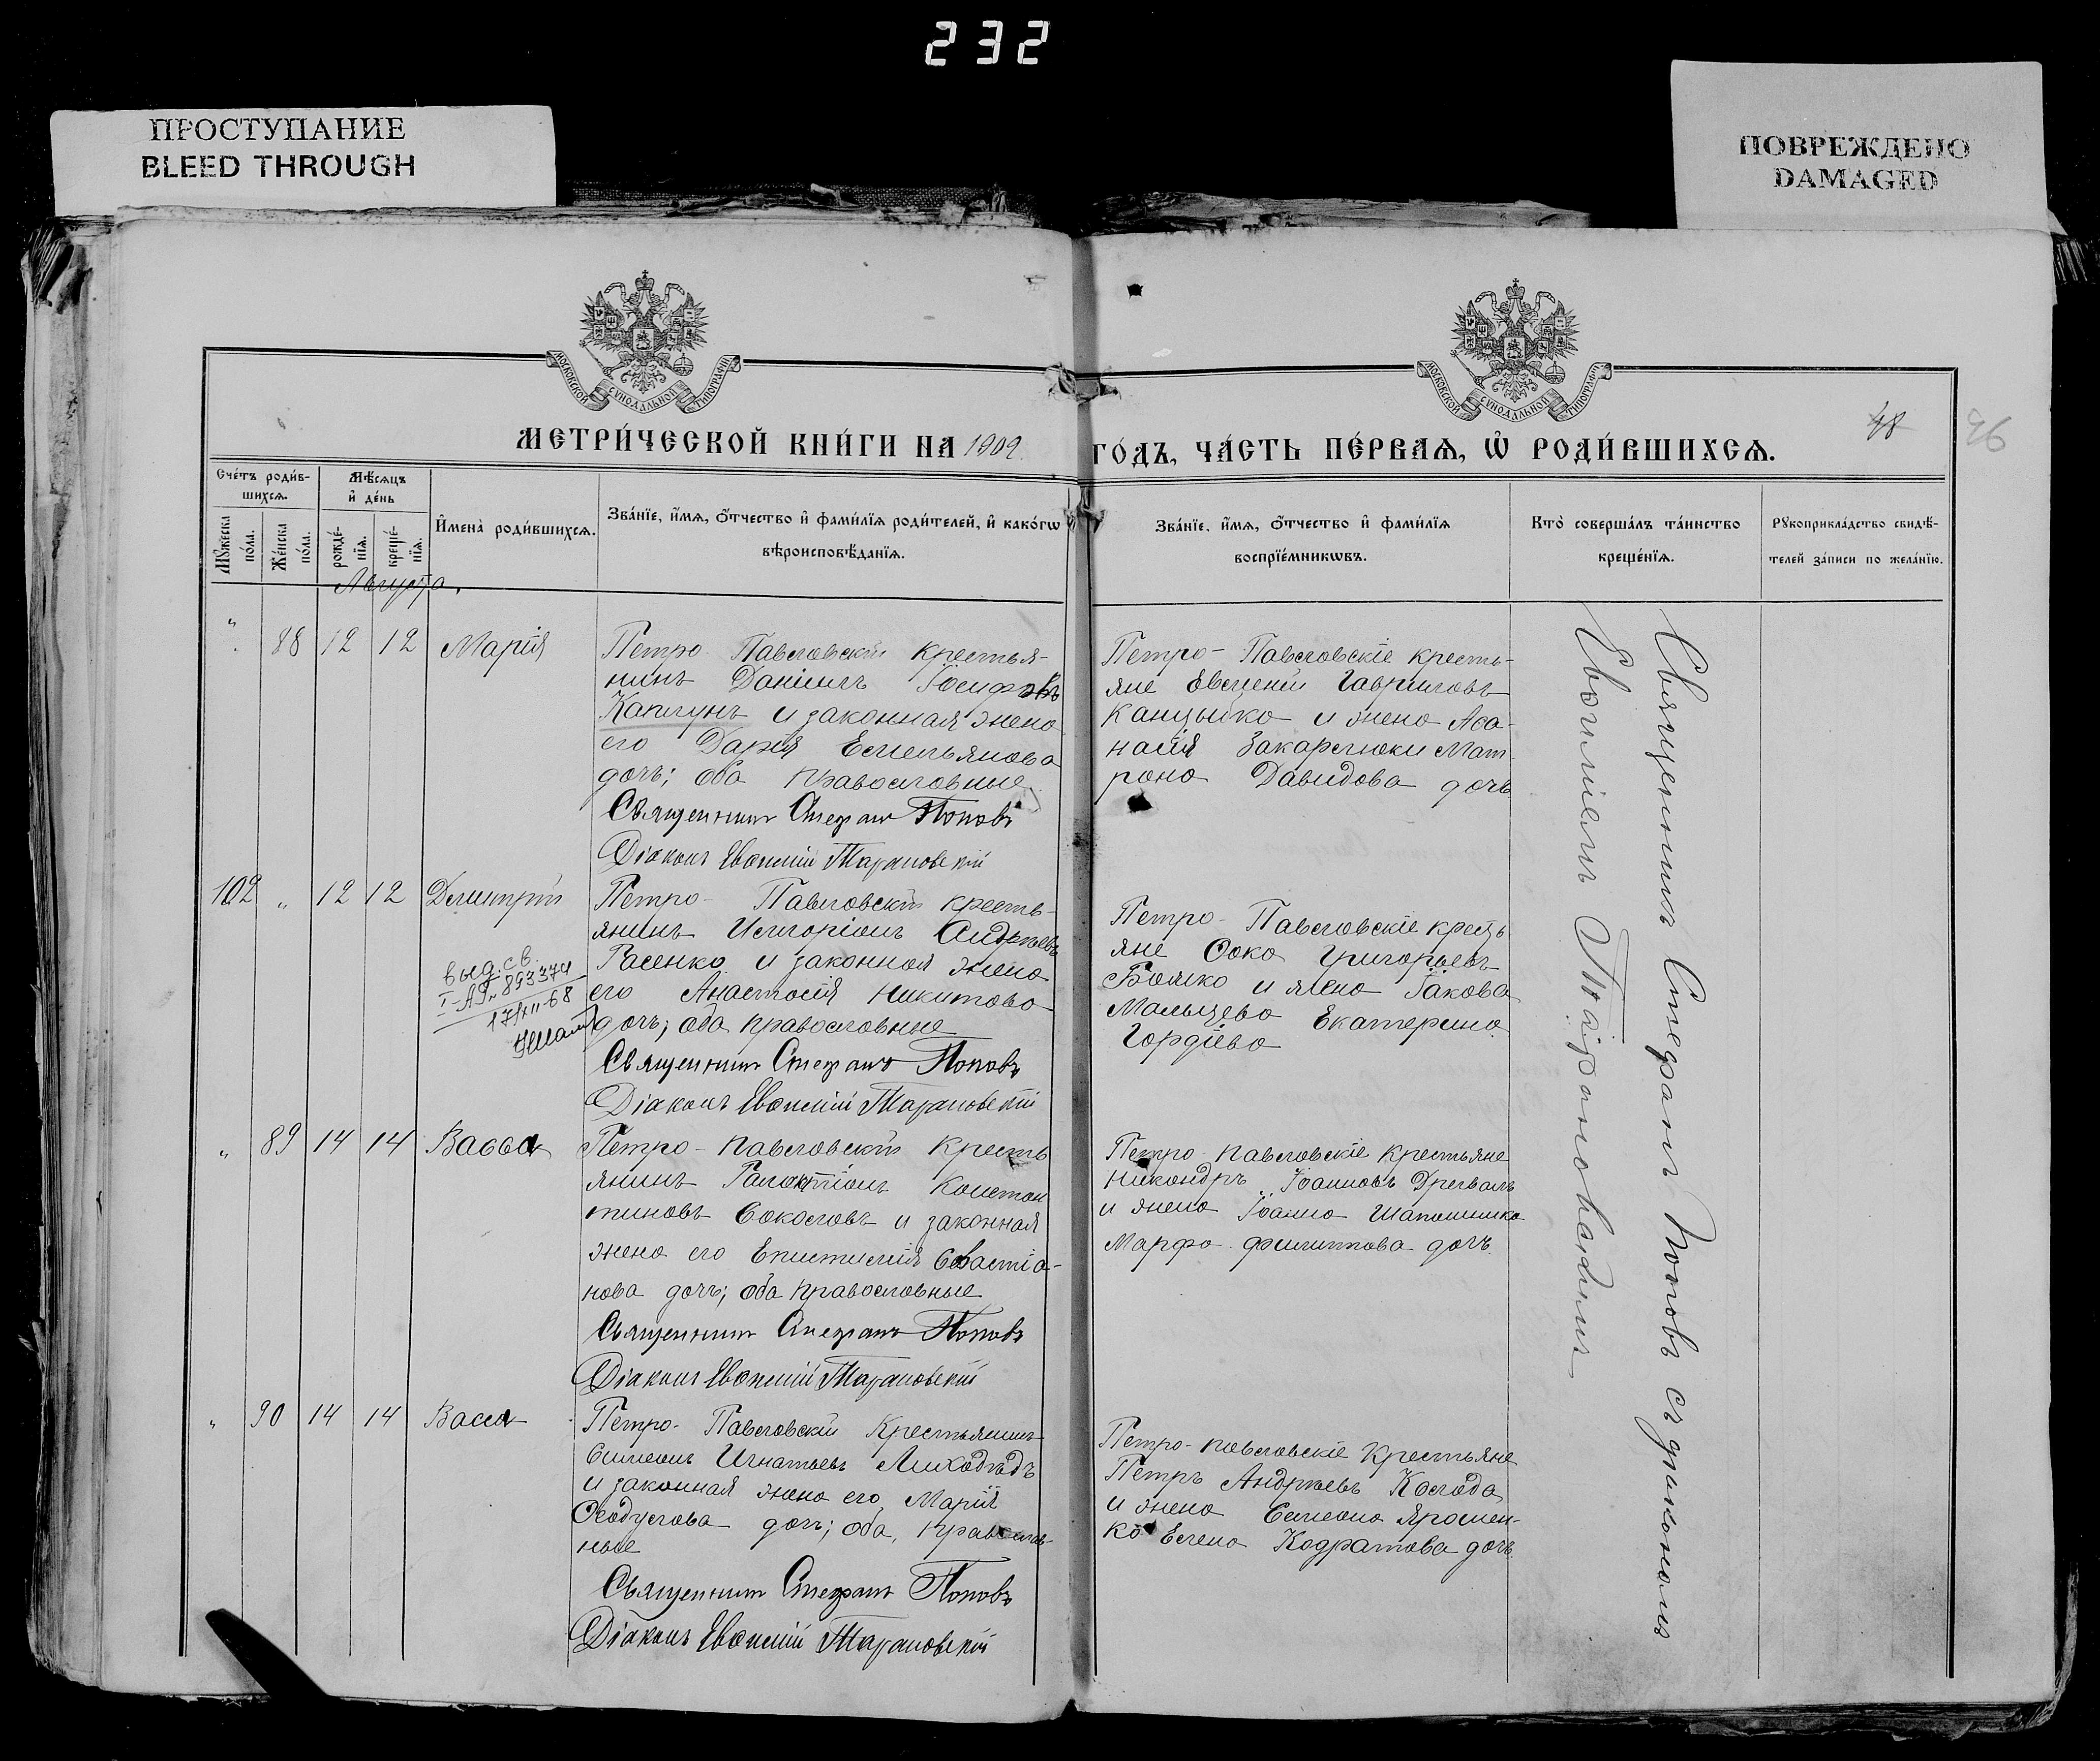 232
ПРОСТУПАНИЕ
BLEED THROUGH
ПОВРЕЖДЕНО
DAMAGED
МОСКОВСКОЙ СѴНОДАЛЬНОЙ ТИПОГРАФІИ
МОСКОВСКОЙ СѴНОДАЛЬНОЙ ТИПОГРАФІИ
48
96
МЕТРИ́ЧЕСКОЙ КНИ́ГИ НА 1909 ГО́ДЪ, ЧА́СТЬ ПЕ́РВАѦ, Ѡ҆ РОДИ́ВШИХСѦ.
Сче́тъ роди́в-
шихсѧ.
Мꙋжеска по́ла.
Же́нска по́ла.
Мѣ́сѧцъ
и҆ де́нь
рожде́-
нїѧ.
креще́-
нїѧ.
И҆мена̀ роди́вшихсѧ.
Зва́нїе, и҆́мѧ, ѻ҆́тчество и҆ фами́лїѧ роди́телей, и҆ како́гѡ
вѣроисповѣ́данїѧ.
Зва́нїе, и҆́мѧ, ѻ҆́тчество и҆ фами́лїѧ
воспрїе́мникѡвъ.
Кто̀ соверша́лъ та́инство
креще́нїѧ.
Рꙋкоприкла́дство свидѣ́-
телей за́писи по жела́нїю.
Августа.
" 88 12 12 Марія
Петро-Павловскій крестья-
нинъ Даніилъ Іосифовъ
Каплунъ и законная жена
его Дарія Емельянова
дочь; оба православные
Священникъ Стефанъ Поповъ
Діаконъ Евѳимій Тарановскій
Петро-Павловскіе кресть-
яне Евгеній Гавриловъ
и жена Аѳа-
насія Мат
рона Давидова дочь
102 " 12 12 Димитрій
выд. св.
I-АЯ 893374
17/XII-68
Петро-Павловскій кресть-
янинъ Иларіонъ Андреевъ
Гасенко и законная жена
его Анастасія Никитова
дочь; оба православные
Священникъ Стефанъ Поповъ
Діаконъ Евѳимій Тарановскій
Петро-Павловскіе кресть
яне Ѳока Григорьевъ
Божко и жена Іакова
Мальцева Екатерина
Гордіева
" 89 14 14 Васса
Петро-Павловскій кресть
янинъ Галактіонъ Констан
тиновъ Соколовъ и законная
жена его Епистимія Севастіа-
нова дочь; оба православные
Священникъ Стефанъ Поповъ
Діаконъ Евѳимій Тарановскій
Петро-Павловскіе крестьяне
Никандръ Іоанновъ Дрегваль
и жена Іоанна Шапошника
Марфа Филиппова дочь
" 90 14 14 Васса
Петро-Павловскій Крестьянинъ
Симеонъ Игнатьевъ Лиходѣдъ
и законная жена его Марія
Ѳеодулова дочь; оба, православ-
ные
Священникъ Стефанъ Поповъ
Діаконъ Евѳимій Тарановскій
Петро-Павловскіе Крестьяне
Петръ Андреевъ Колода
и жена Симеона Ярошен-
ко Елена Кодратова дочь
Священникъ Стефанъ Поповъ съ діакономъ
Евѳиміемъ Тарановскимъ